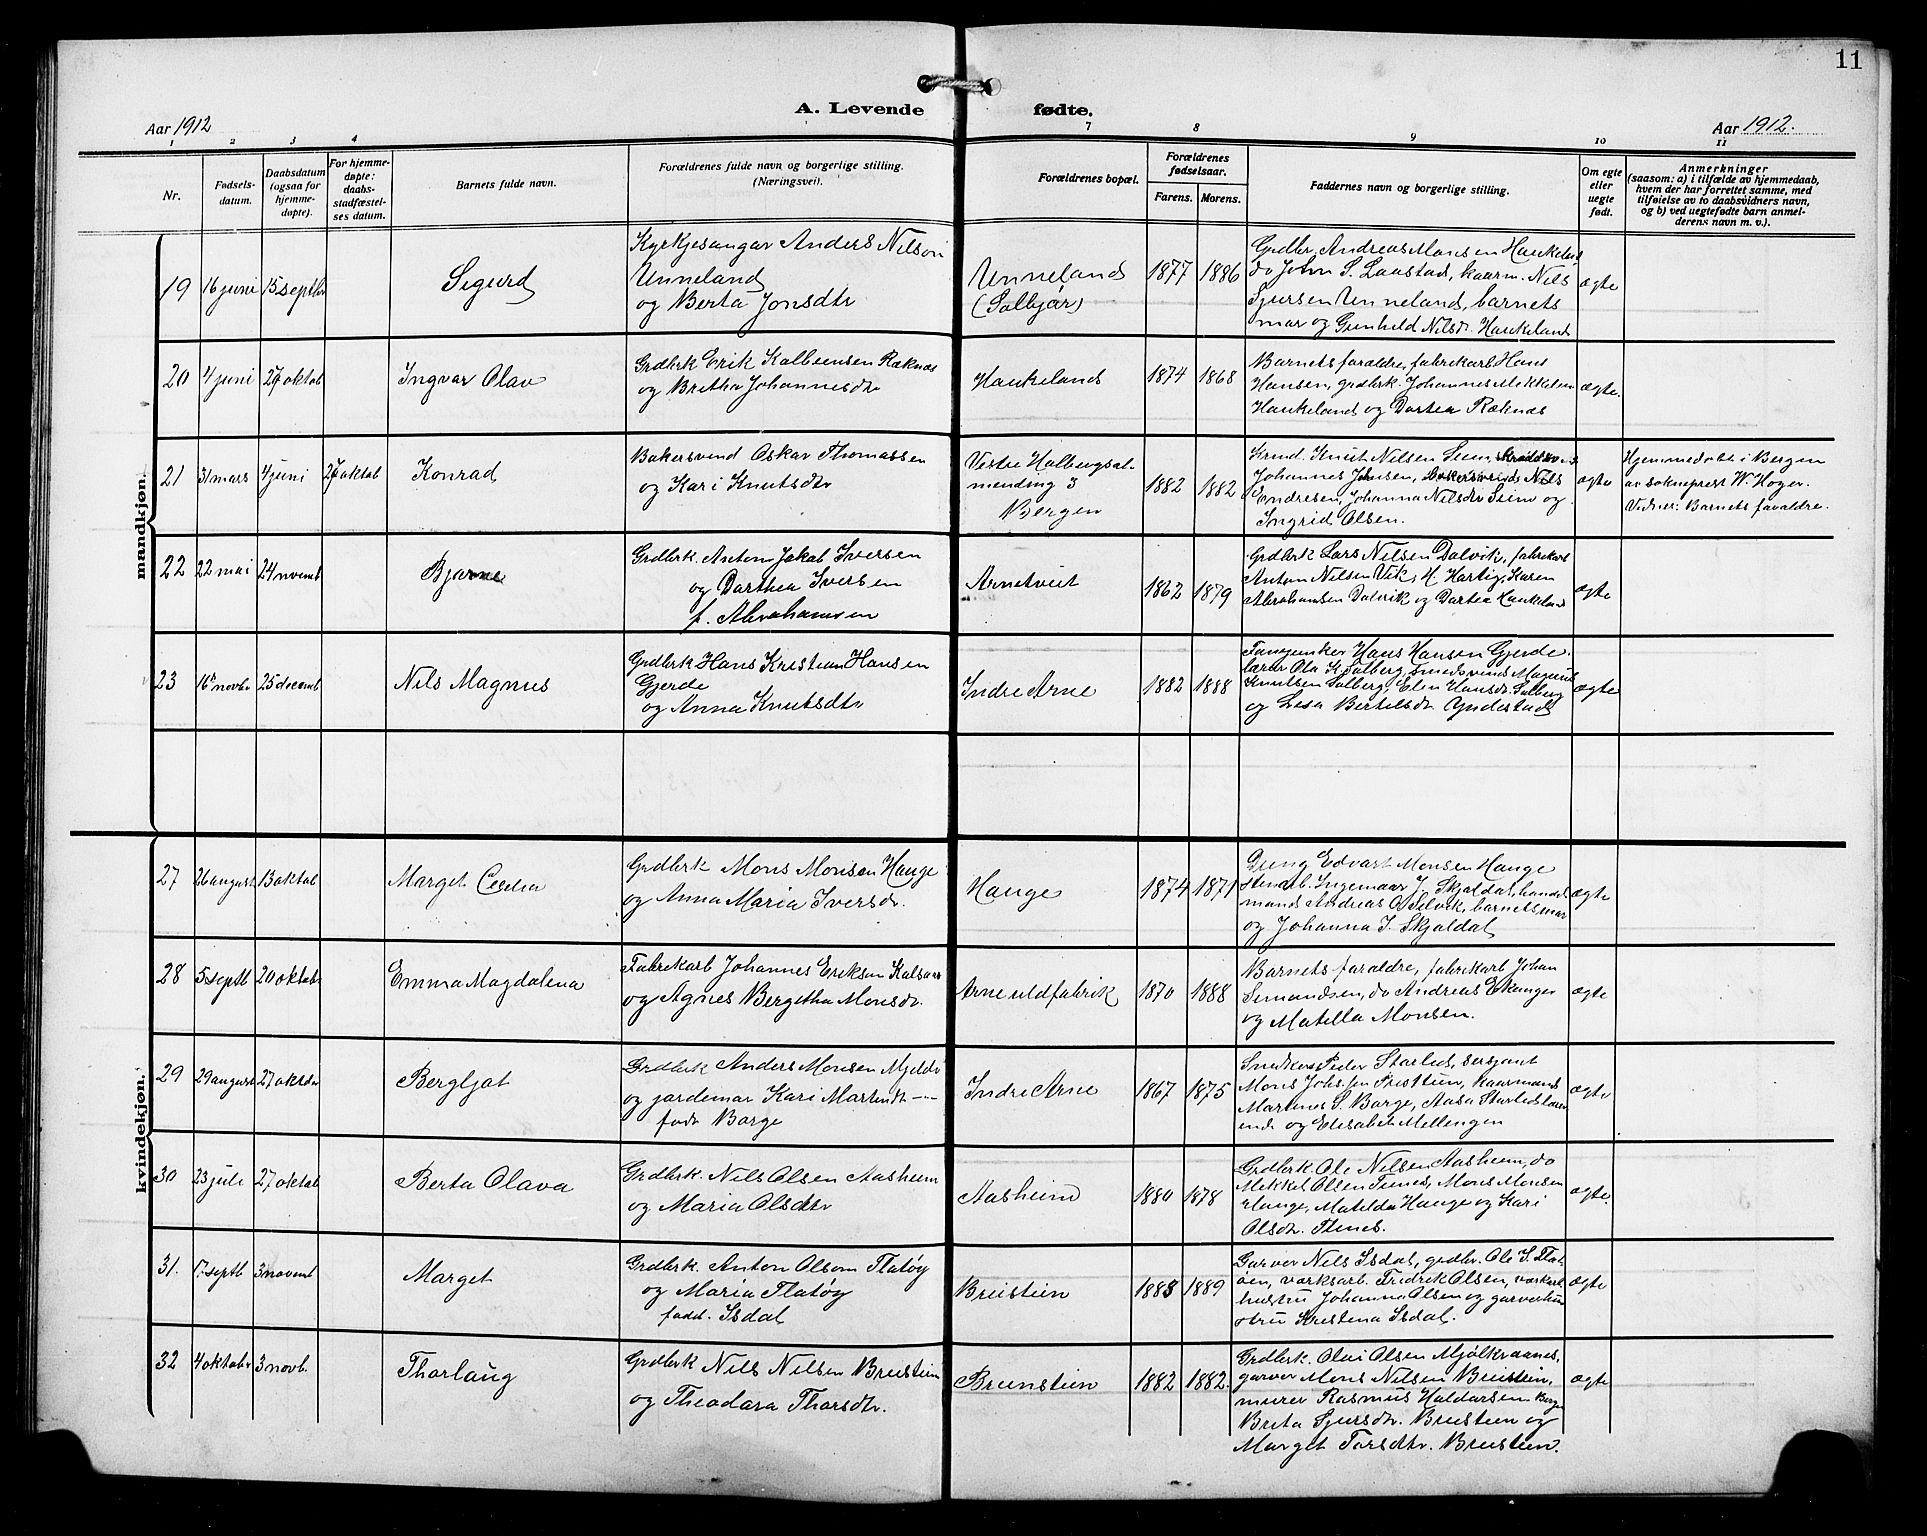 11
A. Levende fødte.
Aar 1912
Aar 1912.
1 2 3 4 7 8 9 10 11
Nr.
Fødsels-
datum.
Daabsdatum
(ogsaa for
hjemme-
døpte).
For hjemme-
døpte:
daabs-
stadfæstel-
ses datum.
Barnets fulde navn.
Forældrenes fulde navn og borgerlige stilling.
(Næringsvei).
Forældrenes bopæl.
Forældrenes
fødselsaar.
Farens. Morens.
Faddernes navn og borgerlige stilling.
Om egte
eller
uegte
født.
Anmerkninger
(saasom: a) i tilfælde av hjemmedaab,
hvem der har forrettet samme, med
tilføielse av to daabsvidners navn,
og b) ved uegtefødte barn anmel-
derens navn m. v.).
mandkjøn.
19 16 juni 15 septbr Sigurd
Kyrkjesangar Anders Nilson
Unneland
og Berta Jonsdtr
Unneland
(Solbjør)
1877 1886
Grdbr. Andreas Monsen Haukeland
do John S. Laastad, kaarm. Nils
Sjursen Unneland, barnets
mor og Gunhild Nilsdr. Haukeland
ægte
20 4 juni 27 oktob Ingvar Olav
Grdbrk Erik Kolbeinsen Røknes
og Britha Johannesdtr
Haukeland
1874 1868
Barnets foraldre, fabrikarb Hans
Hansen, grdbrk. Johannes Mikkelsen
Haukeland og Dortea Røknes
ægte.
21 31 mars 4 juni 27 oktob Konrad
Bakersvend Oskar Thomassen
og Kari Knutsdtr
Vestre Holbergsal-
mending 3
Bergen
1882 1882
Knut Nilsen
Johannes Johnsen, bakersvend Nils
Endresen, Johanna Nilsdtr Seim og
Ingrid Olsen.
ægte
Hjemmedøbt i Bergen
av sokneprest W. Hoger.
Vidner: Barnets foraldre.
22 22 mai 24 novemb Bjarne
Grdbrk. Anton Jakob Iversen
og Dorthea Iversen
f. Abrahamsen
Arnetveit
1862 1879
Grdbrk Lars Nilsen Dalvik, fabrikarb
Anton Nilsen Vik, M. Hartig, Karen
Abrahamsen Dalvik og Dortea Haukeland
ægte
23 16 novbr 25 decemb Nils Magnus
Grdbrk Hans Kristian Hansen
Gjerde
og Anna Knutsdtr
Indre Arne
1882 1888
Hans Hansen Gjerde.
lærer Ola K. Solberg, smedsvend Magnus
Knutsen Solberg, Elen Hansdr. Solberg
og Lisa Bertelsdr
ægte
kvindekjøn.
27 26 august 13 oktob Marget Cecilia
Grdbrk Mons Monsen Hauge
og Anna Maria Iversdr.
Hauge
1874 1871
Edvart Monsen Hauge
Ingemaar J. Skjoldal, handels
mand Andreas O. Selvik, barnets mor
og Johanna I. Skjoldal
ægte
28 5 septb 20 oktob Emma Magdalena
Fabrikarb Johannes Eriksen Kalsaas
og Agnes Bergitha Monsdr.
Arne uldfabrik
1870 1888
Barnets foraldre, fabrikarb Johan
Simondsen, do Andreas Eikanger
og Matilla Monsen.
ægte
29 29 august 27 oktober Bergljot
Grdbrk Anders Monsen Mjelde
og jordemor Kari Martindr -"-
født Borge
Indre Arne
1867 1875
Snedker Peder Storlid, sersjant
Mons Johs.sen Presttun, kaarmand
Martines S. Borge, Aasa Storlid
og Elisabet Mellingen
ægte
30 23 juli 27 oktob Berta Olava
Grdbrk. Nils Olsen Aasheim
og Maria Olsdtr
Aasheim
1880 1878
Grdbrk. Ole Nilsen Aasheim, do
Mikkel Olsen Tunes, Mons Monsen
Hauge, Matilda Hauge og Kari
Olsdr.
ægte.
31. 17. septb 3 novemb Marget
Grdbrk. Anton Olson Flatøy
og Maria Flatøy
fødd. Isdal
Breistein
1883 1889
Garver Nils Isdal, grdbr. Ole I. Flat
øen, varksarb. Fredrik Olsen, varkarb
hustru Johanna Olsen og garverhu
stru Kristena Isdal.
ægte
32 4 oktobr 3 novb. Thorlaug
Grdbrk Nils Nilsen Breistein
og Theodora Thorsdtr.
Breinstein
1882 1882.
Grdbrk. Olai Olsen Mjølkeraanes,
garver Mons Nilsen Breistein,
murer Rasmus Haldorsen Bergen
Brita Sjursdr. Breistein og
Marget Torsdtr. Breistein.
ægte